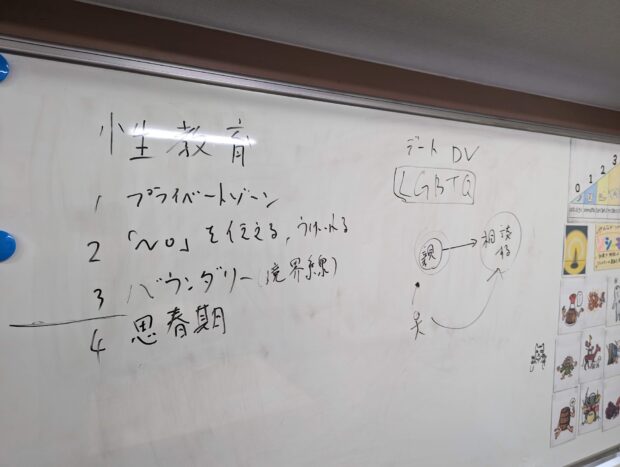 性教育
1 プライベートゾーン
2 「NO」を伝える、うけいれる
3 バウンダリー(境界線)
4 思春期
デートDV
LGBTQ
親
相談する
0 1 2 3